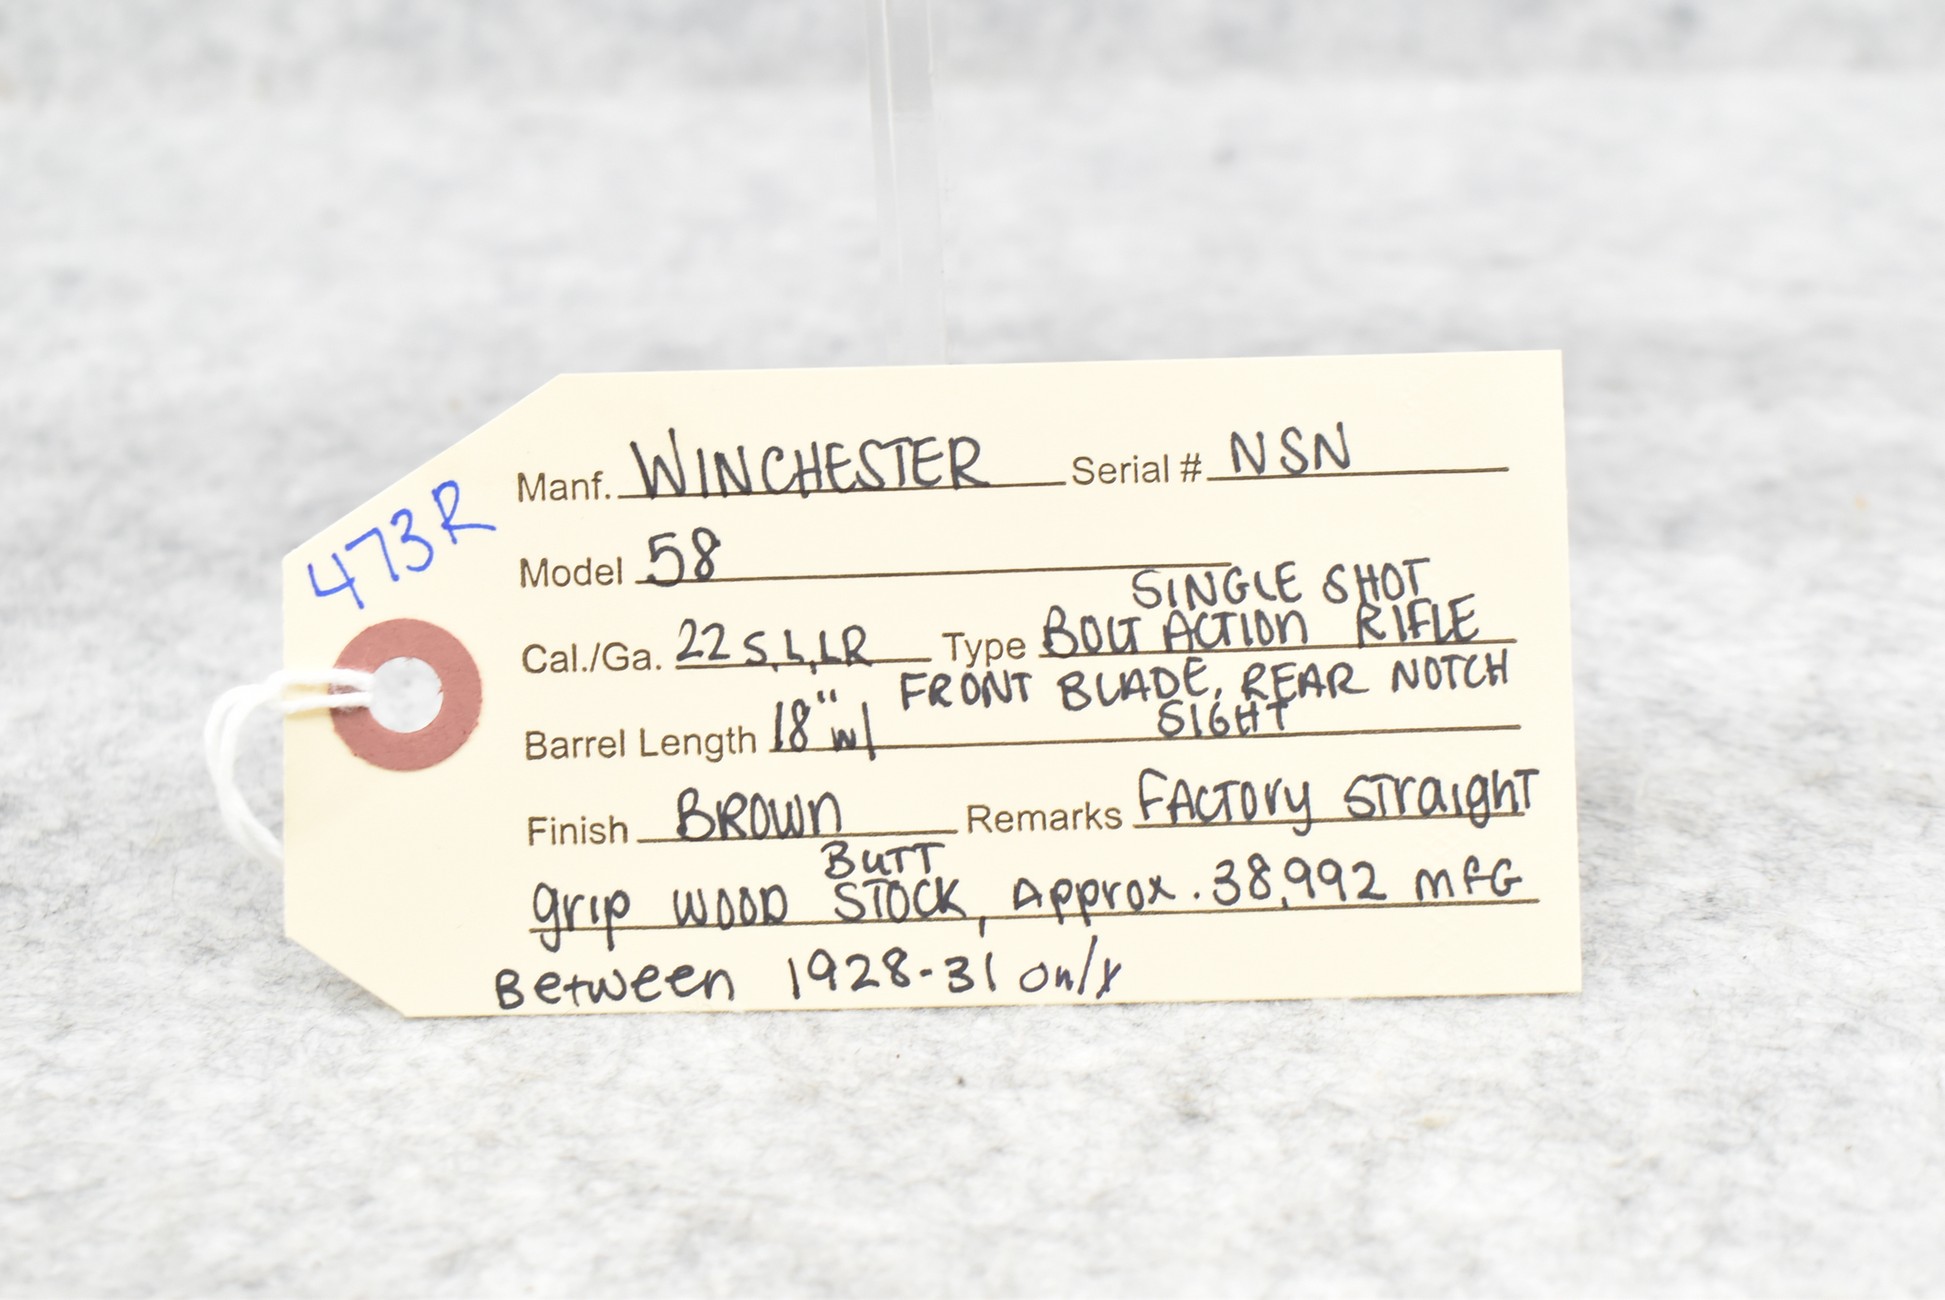 473R
Manf. WINCHESTER Serial # NSN
Model 58
SINGLE SHOT
Cal./Ga. 22 S,L,LR Type BOLT ACTION RIFLE
FRONT BLADE, REAR NOTCH
Barrel Length 18" w/ SIGHT
Finish BROWN Remarks FACTOry STraighT
BUTT
grip WOOD STOCK, Approx. 38,992 mfG
Between 1928-31 only